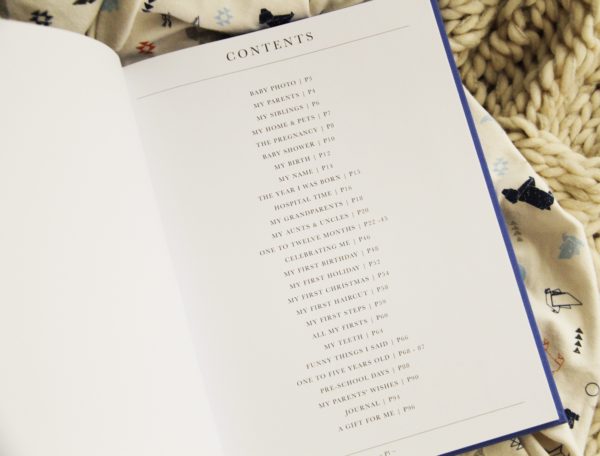 CONTENTS
BABY PHOTO | P3
MY PARENTS | P4
MY SIBLINGS | P6
MY HOME & PETS | P7
THE PREGNANCY | P9
BABY SHOWER | P10
MY BIRTH | P12
MY NAME | P14
THE YEAR I WAS BORN | P15
HOSPITAL TIME | P16
MY GRANDPARENTS | P18
MY AUNTS & UNCLES | P20
ONE TO TWELVE MONTHS | P22 -45
CELEBRATING ME | P46
MY FIRST BIRTHDAY | P48
MY FIRST HOLIDAY | P52
MY FIRST CHRISTMAS | P54
MY FIRST HAIRCUT | P58
MY FIRST STEPS | P59
ALL MY FIRSTS | P60
MY TEETH | P64
FUNNY THINGS I SAID | P66
ONE TO FIVE YEARS OLD | P68 - 87
PRE-SCHOOL DAYS | P88
MY PARENTS' WISHES | P90
JOURNAL | P94
A GIFT FOR ME | P96
~ P1 ~